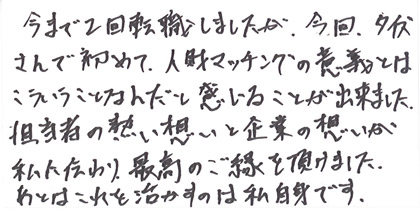 今まで2回転職しましたが、今回、タイズ
さんで初めて、人財マッチングの意義とは
こういうことなんだと感じることが出来ました。
担当者の熱い想いと企業の想いが
私に伝わり、最高のご縁を頂けました。
あとはこれを活かすのは私自身です。